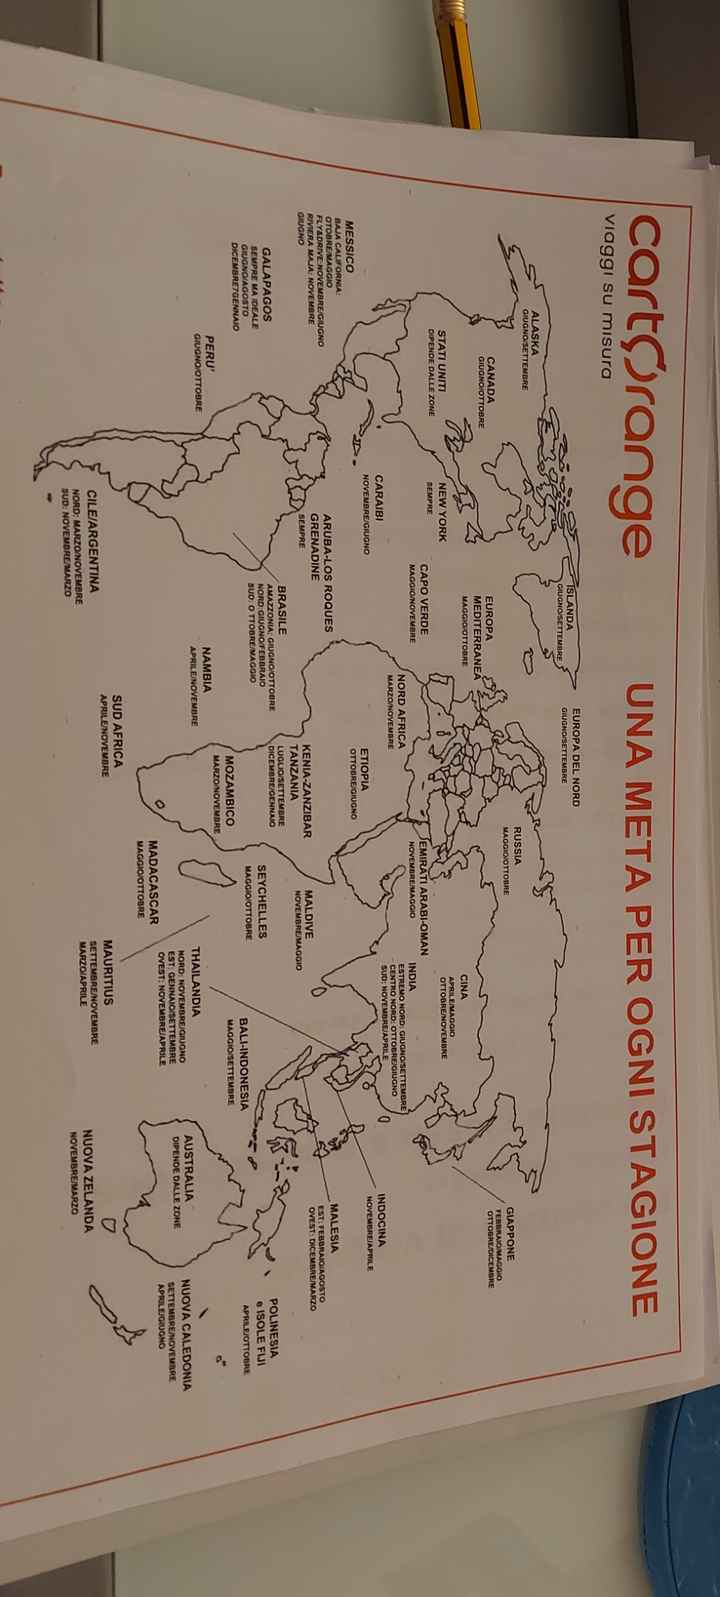 cartOrange
viaggi su misura
UNA META PER OGNI STAGIONE
ALASKA
GIUGNO/SETTEMBRE
CANADA
GIUGNO/OTTOBRE
STATI UNITI
DIPENDE DALLE ZONE
NEW YORK
SEMPRE
ISLANDA
GIUGNO/SETTEMBRE
EUROPA DEL NORD
GIUGNO/SETTEMBRE
EUROPA
MEDITERRANEA
MAGGIO/OTTOBRE
RUSSIA
MAGGIO/OTTOBRE
GIAPPONE
FEBBRAIO/MAGGIO
OTTOBRE/DICEMBRE
CINA
APRILE/MAGGIO
OTTOBRE/NOVEMBRE
MESSICO
BAJA CALIFORNIA:
OTOBRE/MAGGIO
FLY&DRIVE:NOVEMBRE/GIUGNO
RIVIERA MAJA: NOVEMBRE
GIUGNO
CARAIBI
NOVEMBRE/GIUGNO
CAPO VERDE
MAGGIO/NOVEMBRE
NORD AFRICA
MARZO/NOVEMBRE
EMIRATI ARABI-OMAN
NOVEMBRE/MAGGIO
INDIA
ESTREMO NORD: GIUGNO/SETTEMBRE
CENTRO NORD: OTTOBRE/GIUGNO
SUD: NOVEMBRE/APRILE
INDOCINA
NOVEMBRE/APRILE
GALAPAGOS
SEMPRE MA IDEALE
GIUGNO/AGOSTO
DICEMBRE?GENNAIO
ARUBA-LOS ROQUES
GRENADINE
SEMPRE
ETIOPIA
OTTOBRE/GIUGNO
MALDIVE
NOVEMBRE/MAGGIO
MALESIA
EST: FEBBRAIO/AGOSTO
OVEST: DICEMBRE/MARZO
PERU'
GIUGNO/OTTOBRE
BRASILE
AMAZZONIA: GIUGNO/OTTOBRE
NORD:GIUGNO/FEBBRAIO
SUD: O TTOBRE/MAGGIO
KENIA-ZANZIBAR
TANZANIA
LUGLIO/SETTEMBRE
DICEMBRE/GENNAIO
SEYCHELLES
MAGGIO/OTTOBRE
BALI-INDONESIA
MAGGIO/SETTEMBRE
POLINESIA
e ISOLE FIJI
APRILE/OTTOBRE
NAMBIA
APRILE/NOVEMBRE
MOZAMBICO
MARZO/NOVEMBRE
THAILANDIA
NORD: NOVEMBRE/GIUGNO
EST: GENNAIO/SETTEMBRE
OVEST: NOVEMBRE/APRILE
AUSTRALIA
DIPENDE DALLE ZONE
NUOVA CALEDONIA
SETTEMBRE/NOVEMBRE
APRILE/GIUGNO
CILE/ARGENTINA
NORD: MARZO/NOVEMBRE
SUD: NOVEMBRE/MARZO
SUD AFRICA
APRILE/NOVEMBRE
MADACASCAR
MAGGIO/OTTOBRE
MAURITIUS
SETTEMBRE/NOVEMBRE
MARZO/APRILE
NUOVA ZELANDA
NOVEMBRE/MARZO